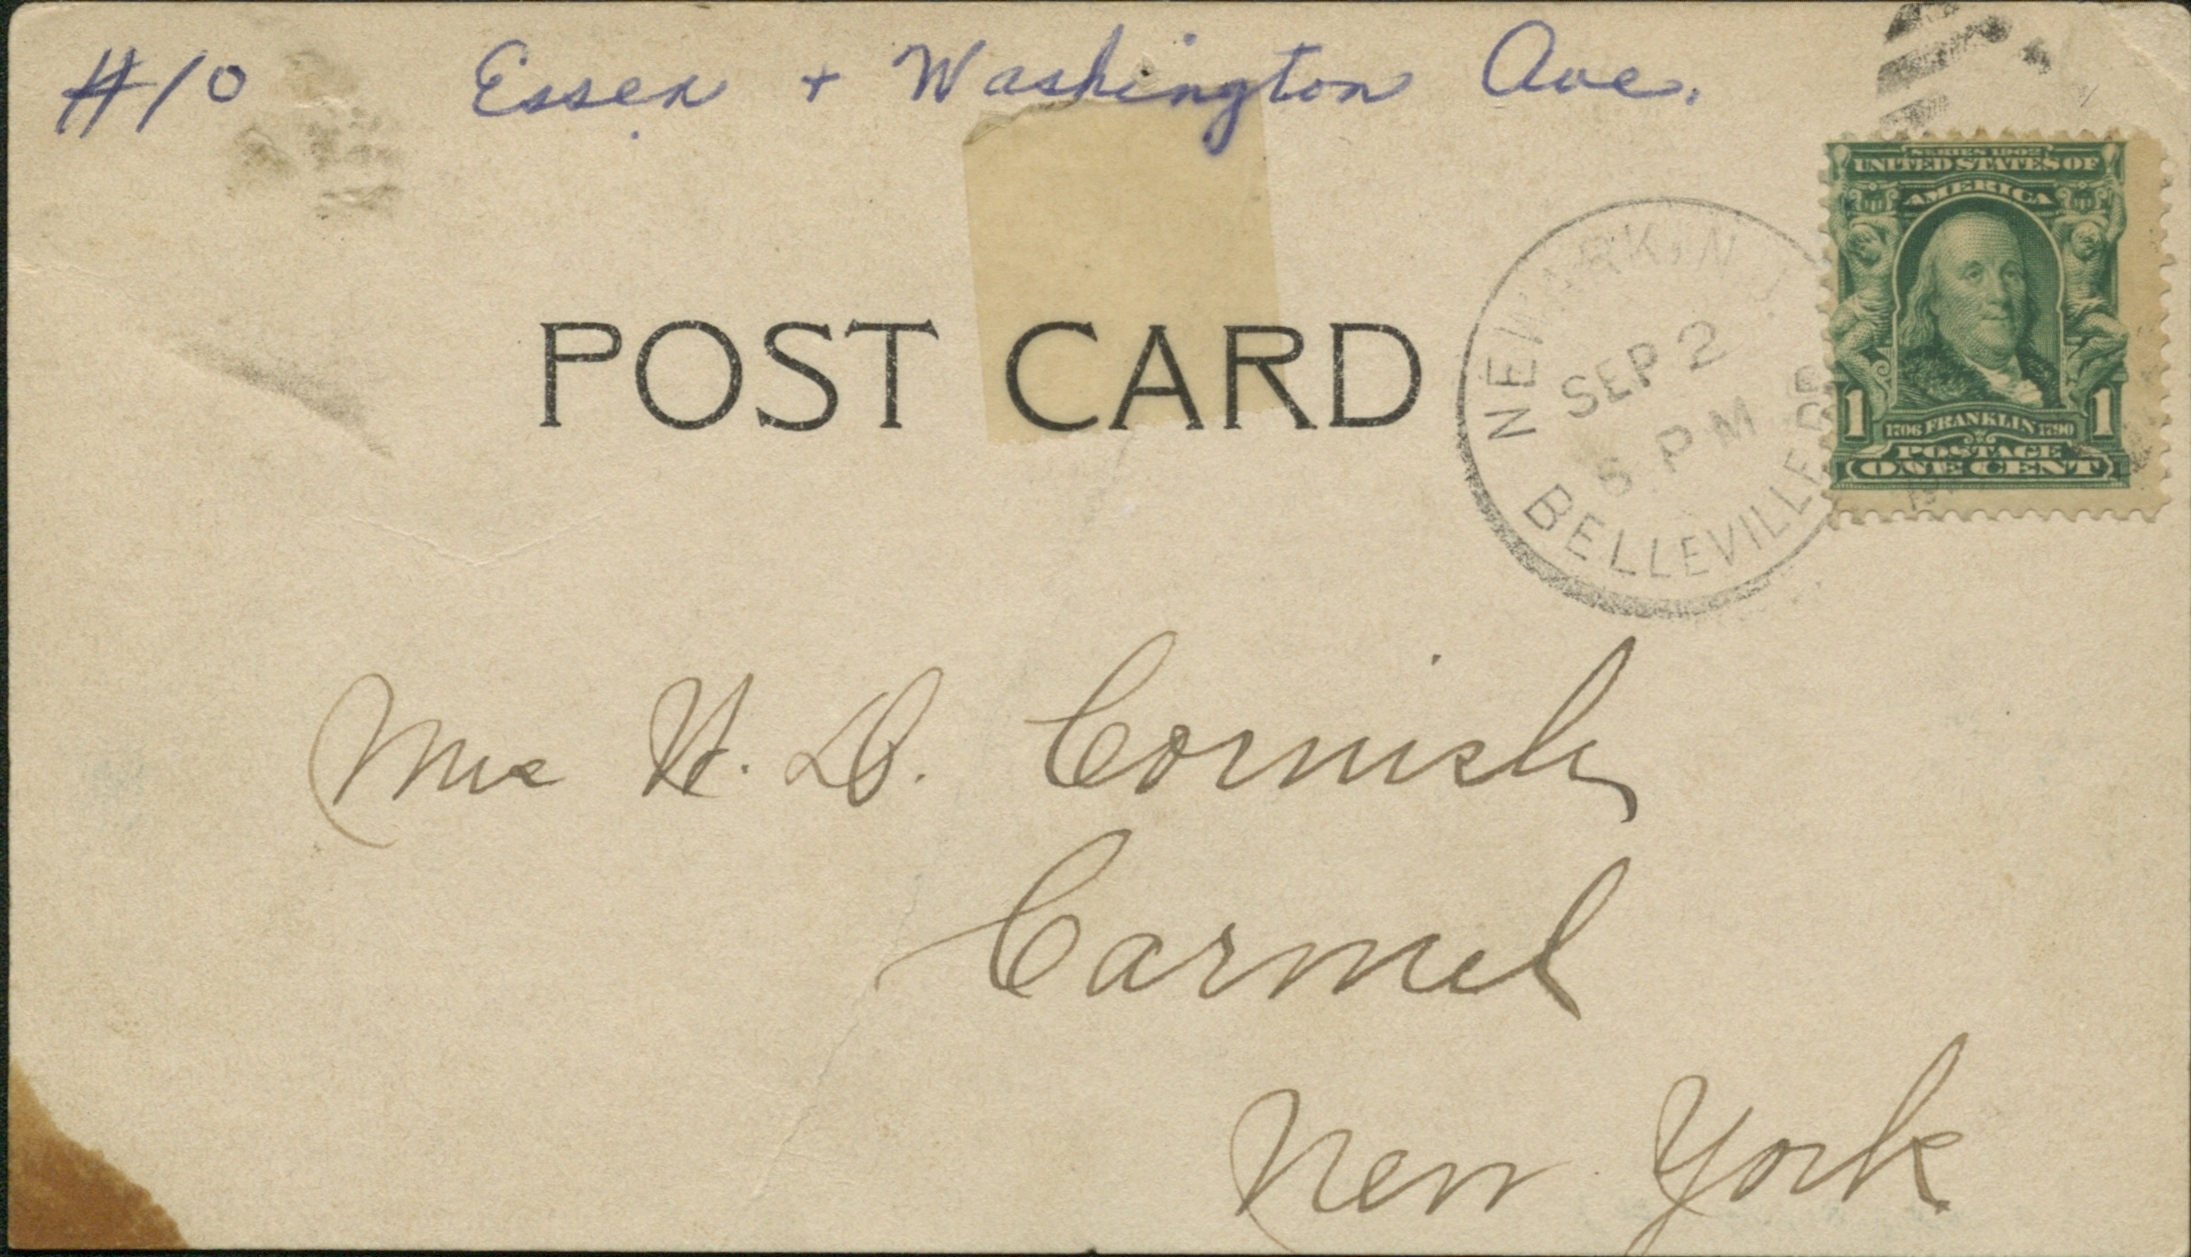 #10 Essex + Washington Ave.
SERIES 1902
UNITED STATES OF
AMERICA
1 1706 FRANKLIN 1790 1
POSTAGE
ONE CENT
NEWARK, N.J.
SEP 2
5 PM
BELLEVILLE
POST CARD
Mrs H. D. Cornish
Carmel
New York